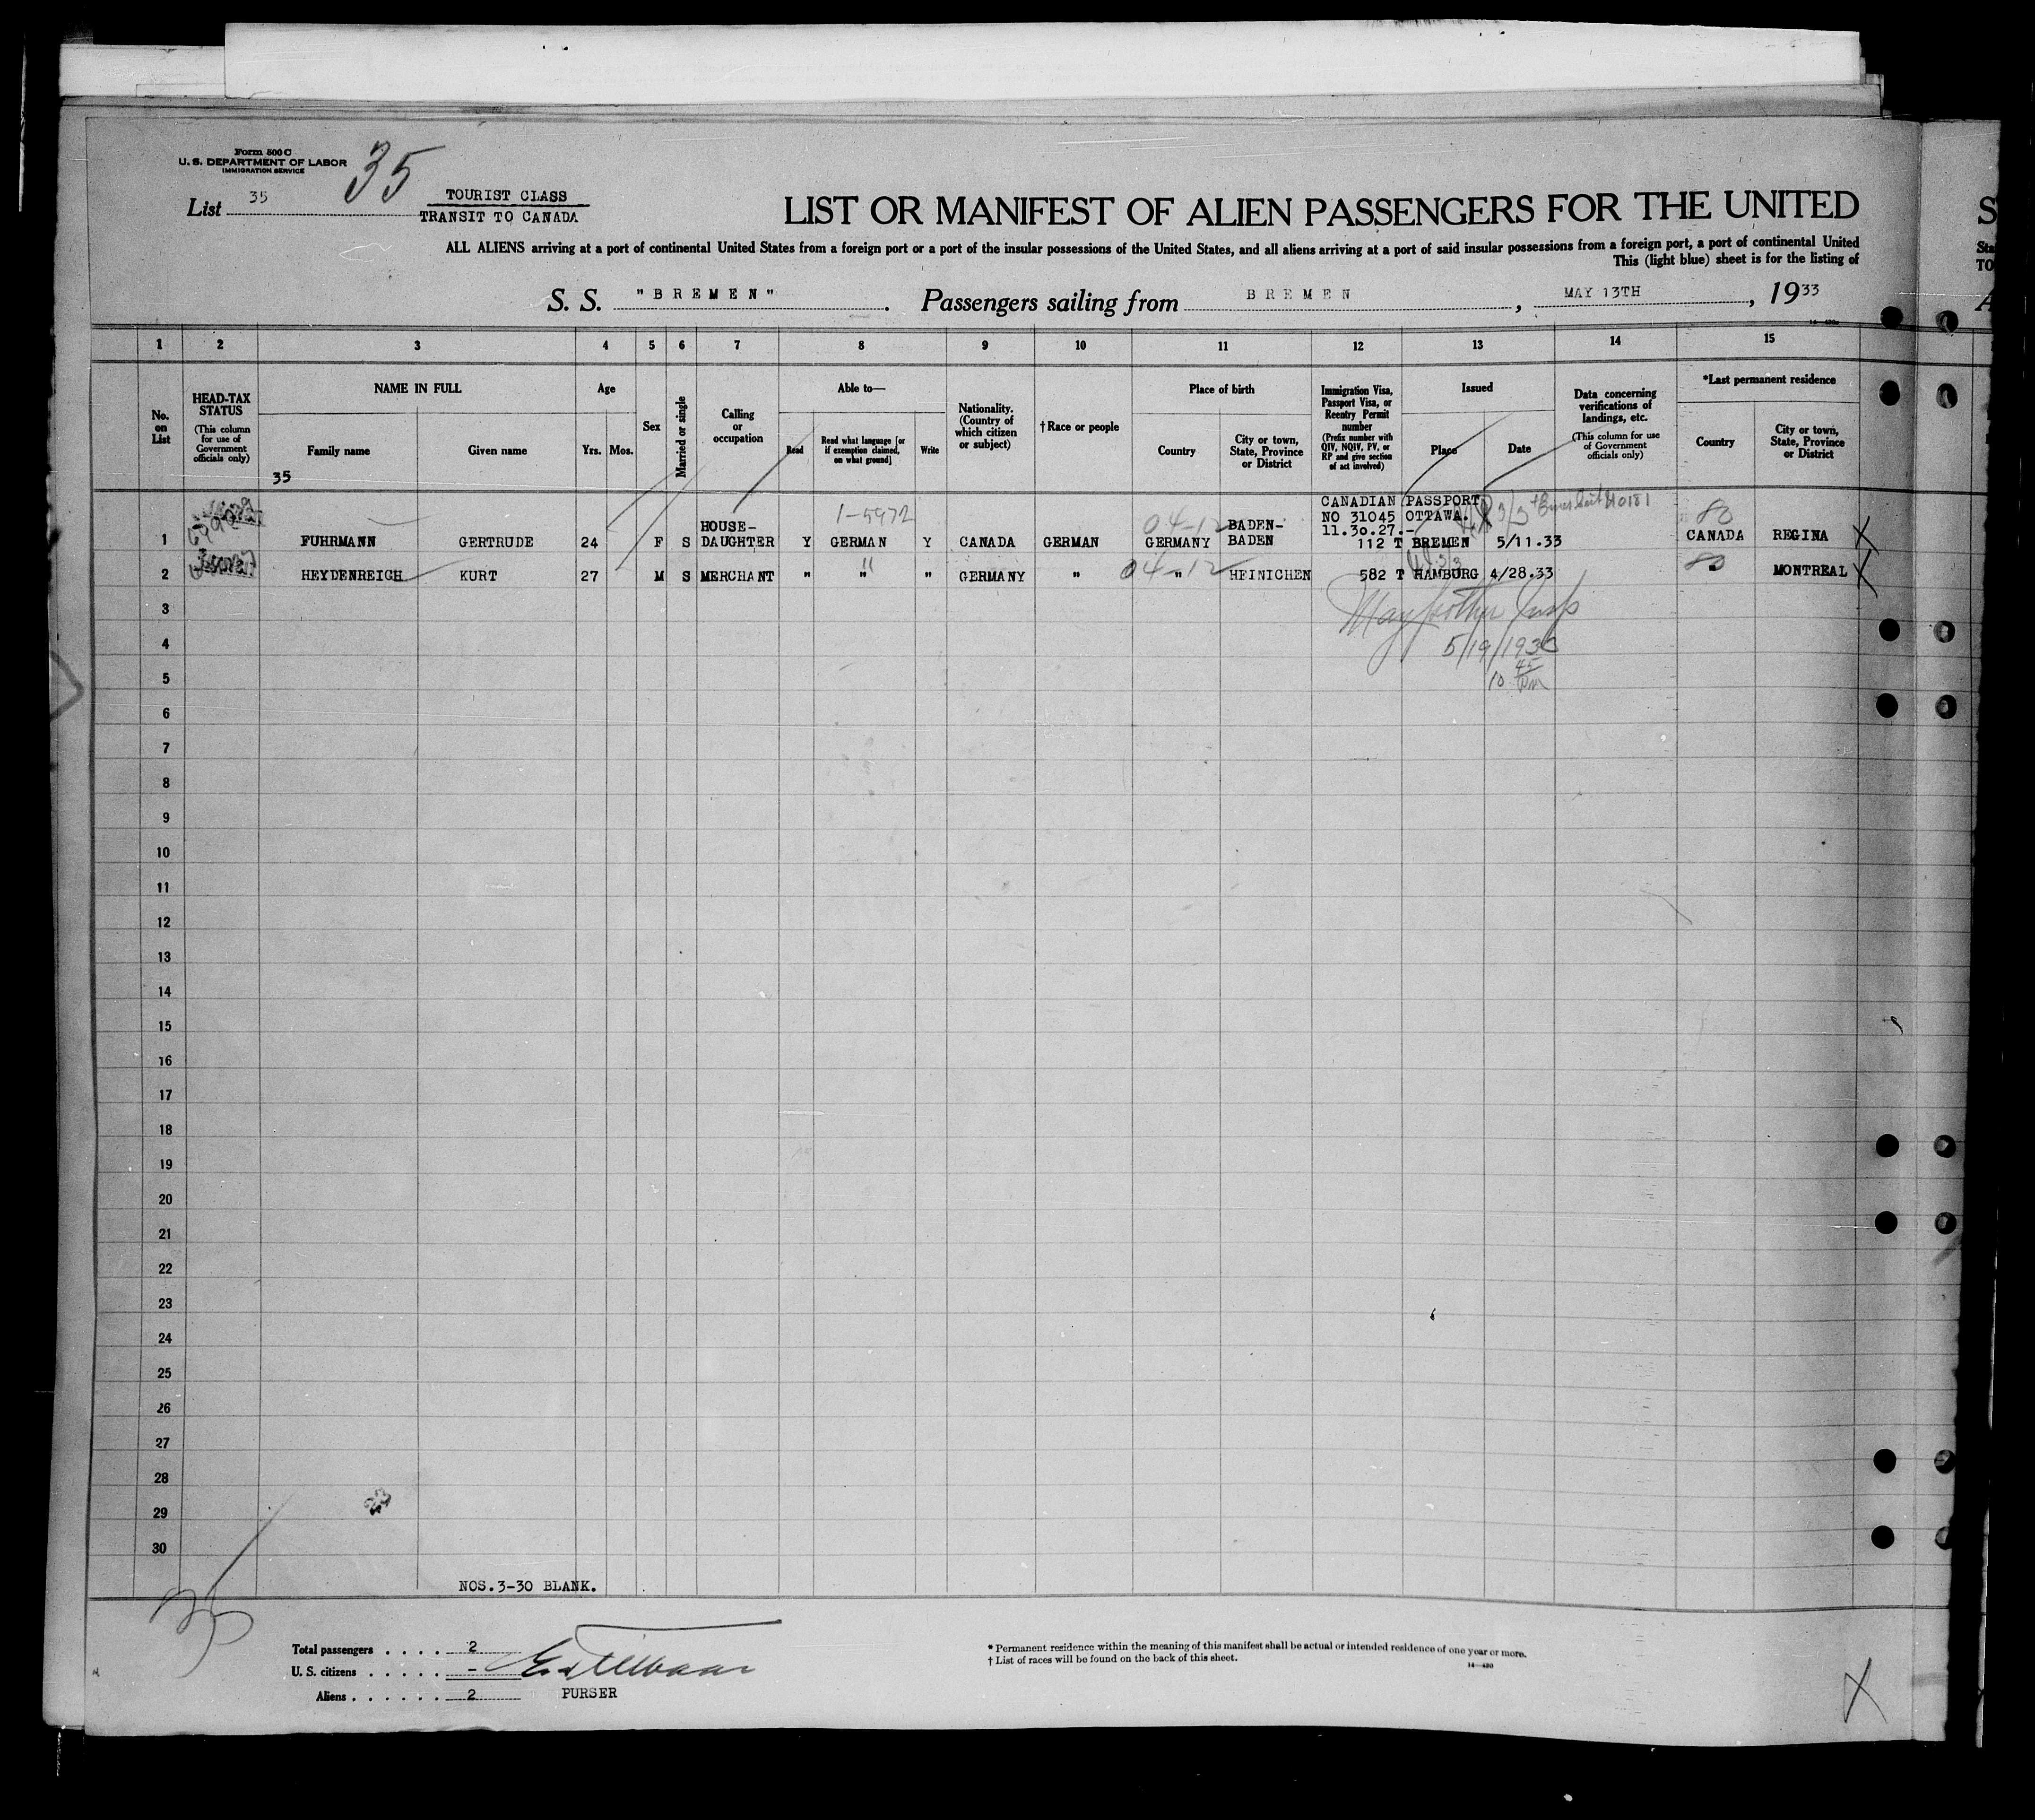 Form 500 C
U. S. DEPARTMENT OF LABOR
IMMIGRATION SERVICE
35
List 35
TOURIST CLASS
TRANSIT TO CANADA
LIST OR MANIFEST OF ALIEN PASSENGERS FOR THE UNITED
ALL ALIENS arriving at a port of continental United States from a foreign port or a port of the insular possessions of the United States, and all aliens arriving at a port of said insular possessions from a foreign port, a port of continental United
This (light blue) sheet is for the listing of
S. S. "BREMEN". Passengers sailing from BREMEN, MAY 13TH, 1933
1 2 3 4 5 6 7 8 9 10 11 12 13 14 15
No. on List
HEAD-TAX STATUS (This column for use of Government officials only)
NAME IN FULL
Family name
Given name
35
Age
Yrs. Mos.
Sex
Married or single
Calling or occupation
Able to—
Read
Read what language [or if exemption claimed, on what ground]
Write
Nationality. (Country of which citizen or subject)
†Race or people
Place of birth
Country
City or town, State, Province or District
Immigration Visa, Passport Visa, or Reentry Permit number (Prefix number with QIV, NQIV, PV, or RP and give section of act involved)
Issued
Place
Date
Data concerning verifications of landings, etc. (This column for use of Government officials only)
*Last permanent residence
Country
City or town, State, Province or District
1-5972
04-12
CANADIAN PASSPORT
NO 31045 OTTAWA.
11.30.27.-
80
1 FUHRMANN GERTRUDE 24 F S HOUSE-DAUGHTER Y GERMAN Y CANADA GERMAN GERMANY BADEN-BADEN 112 T BREMEN 5/11.33 CANADA REGINA X
04-12
80
2 HEYDENREICH KURT 27 M S MERCHANT " " " GERMANY " " HEINICHEN 582 T HAMBURG 4/28.33 " MONTREAL X
3
4
5
6
7
8
9
10
11
12
13
14
15
16
17
18
19
20
21
22
23
24
25
26
27
28
29
30
NOS.3-30 BLANK.
Total passengers . . . . . 2
U. S. citizens . . . . . -
Aliens . . . . . . 2
PURSER
* Permanent residence within the meaning of this manifest shall be actual or intended residence of one year or more.
† List of races will be found on the back of this sheet.
14—430
X